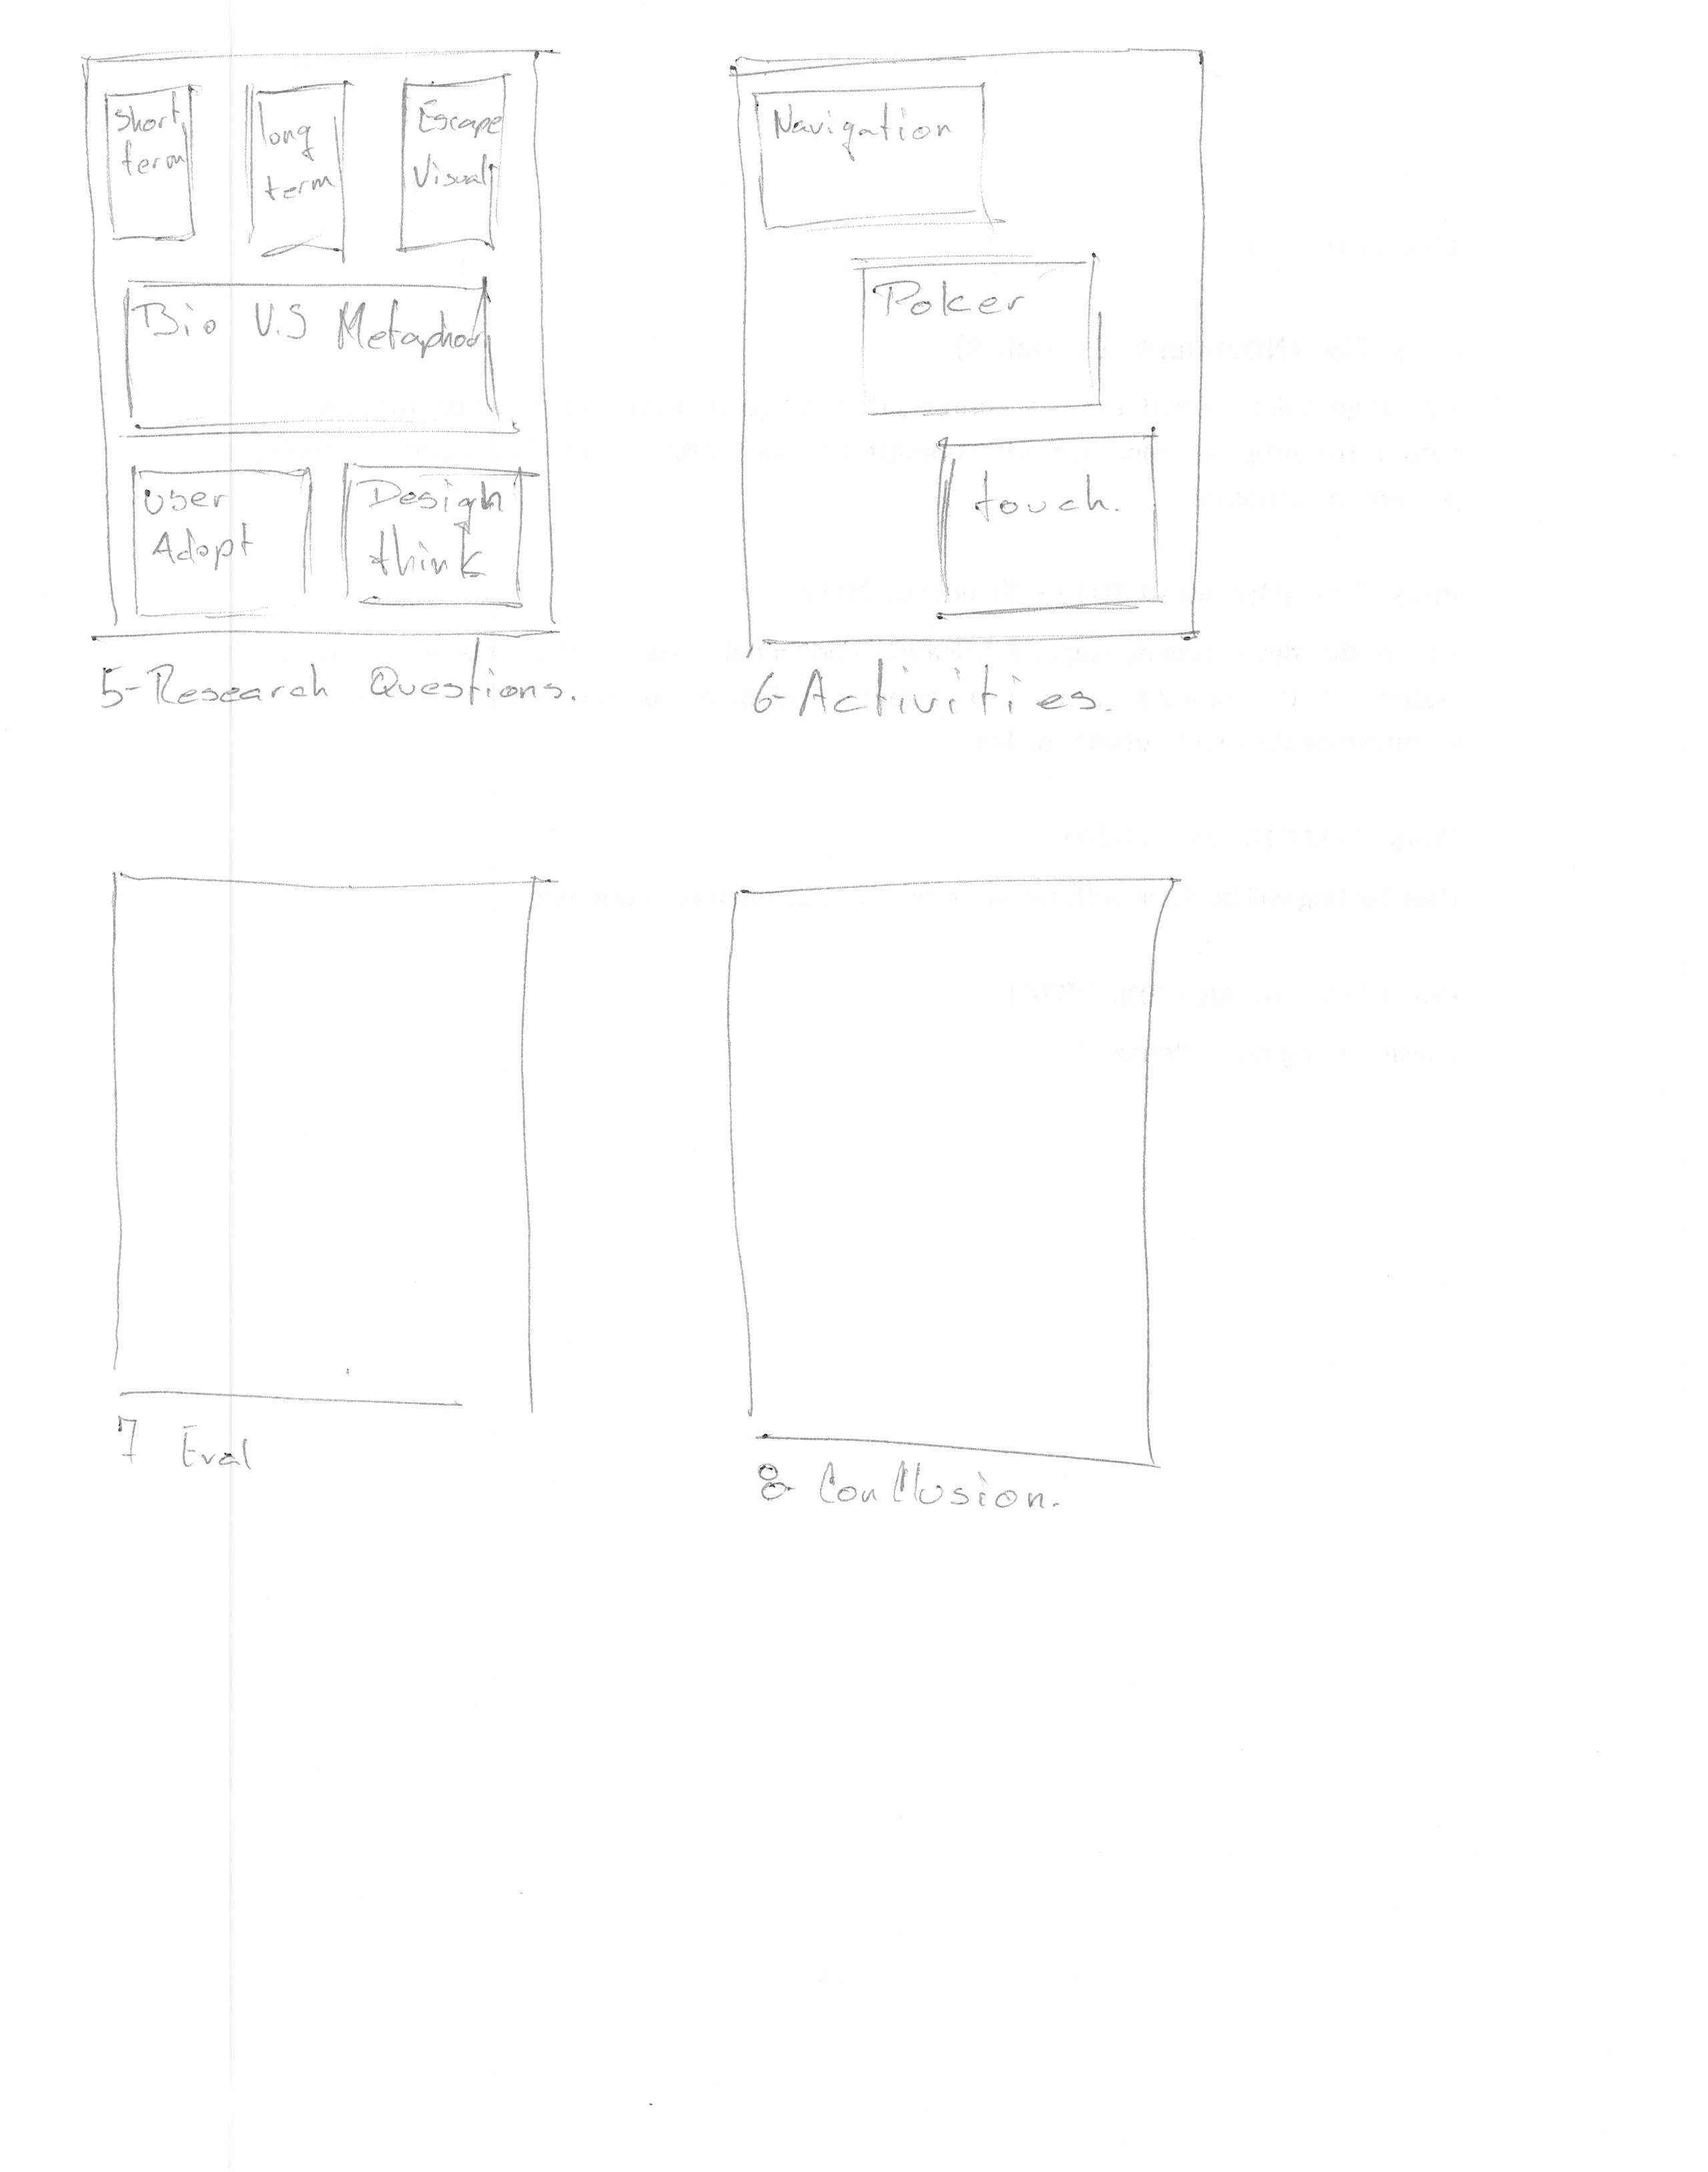 Short
term
long
term
Escape
Visual
Bio V.S Metaphor
User
Adopt
Design
think
5-Research Questions.
Navigation
Poker
touch.
6-Activities.
7 Eval
8- Conclusion.